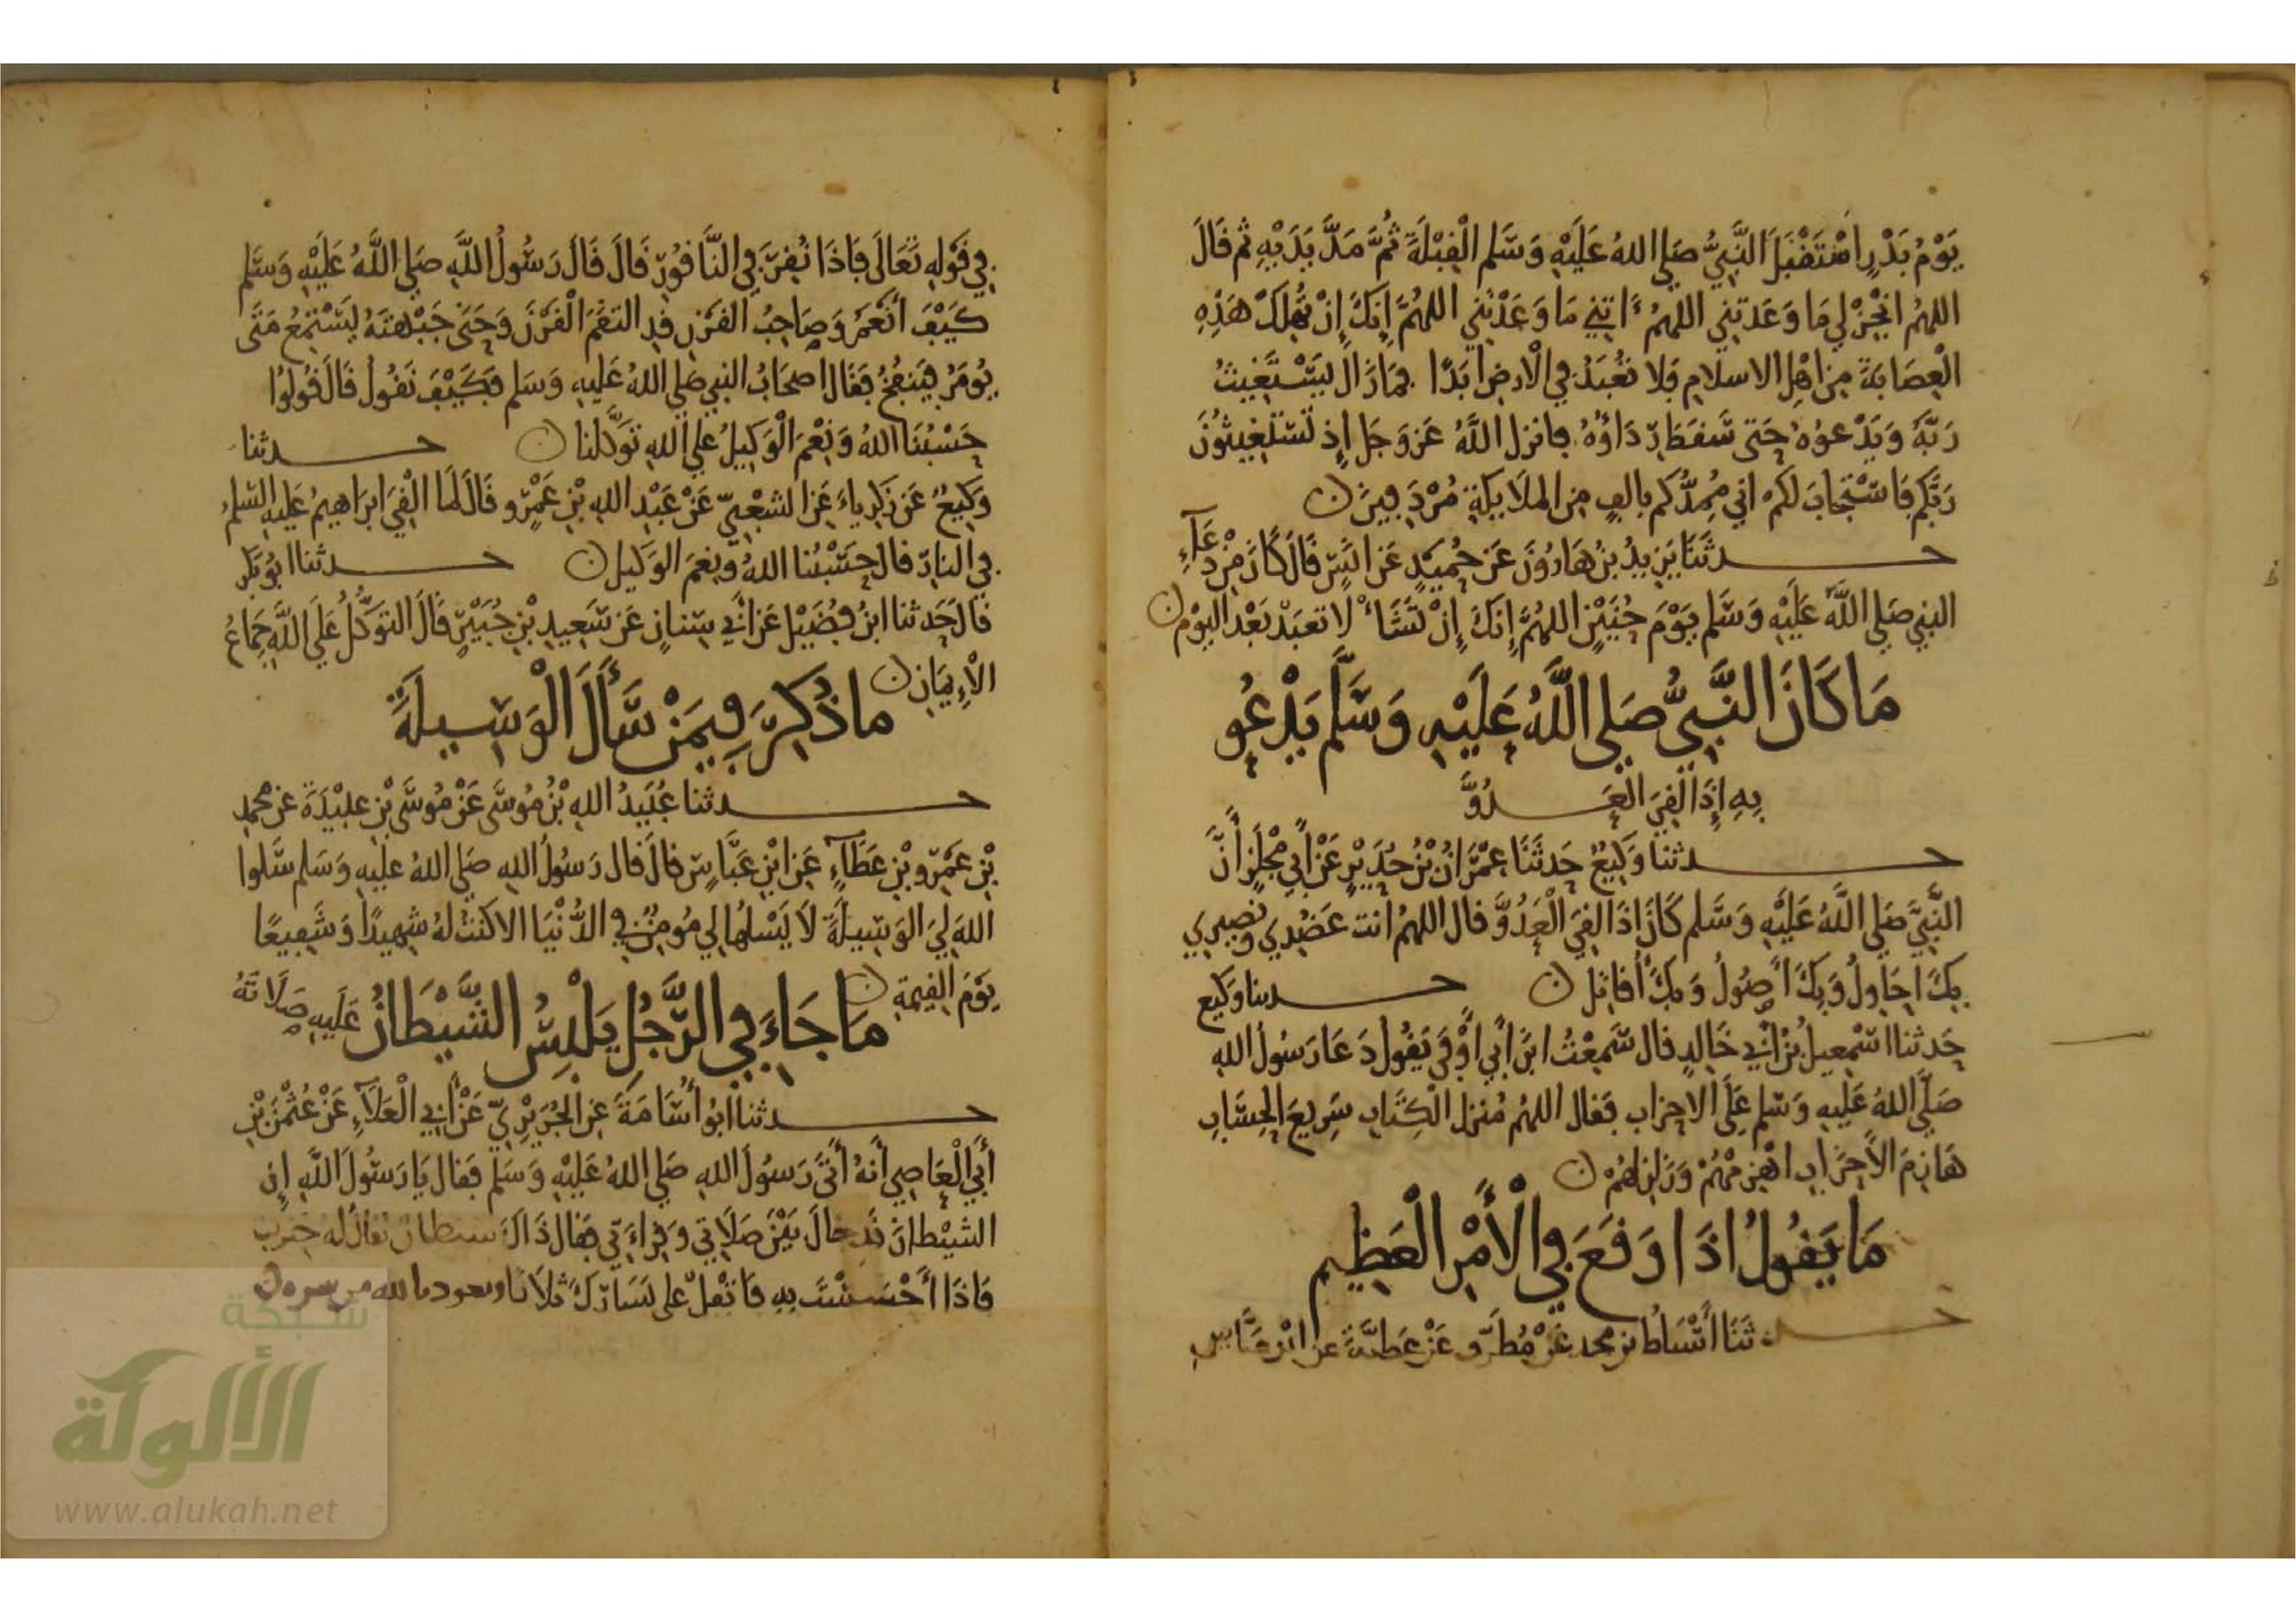 يَوْمُ بَدْرٍ اسْتَقْبَلَ النَّبِيُّ صَلى اللهُ عَلَيْهِ وَسَّلم الْقِبْلَةَ ثُمَّ مَدَّ يَدَيْهِ ثم قَالَ
اللهُم انْجِزْ لِي مَا وَعَدتَنِي اللهُم ءَاتِنِي مَا وَعَدْتَنِي اللهُمَّ إِنَكَ إِنْ تُهْلِكْ هَذِهِ
الْعِصَابَةَ مِن اهْلِ الاسلامِ فَلا تُعْبَدْ فِي الْارضِ ابَدًا فمَا زَالَ يَسْتَغِيثُ
رَبَّهُ وَيَدْعوُهُ حَتى سَقَطَ رِدَاؤُهُ فانزل اللَّهُ عَزوَجَل إِذ تَسْتَغِيثُونَ
رَبَّكم فَاسْتَجَابَ لكمْ انِي مُمِدُّكم بالفٍ مِن الملَايِكَةِ مُرْدَفِينَ ن
حـدثَنَا يَزِيدُ بنُ هَارُونَ عَن حُمَيْدٍ عَن انَسٍ قَالَ كَانَ مِنْ دُعَآءِ
النبِي صَلى اللَّهُ عَلَيْهِ وَسَلم يَوْمَ حُنَيْنٍ اللهُمَّ إِنَكَ إِنْ تَشَأْ لَا تعبَدْ بَعْدَ اليَوْمِ ن
مَا كَانَ النَّبِيُّ صَلى اللَّهُ عَلَيْهِ وَسَّلَّم يَدْعُو
بِهِ إِذَا لَقِيَ الْعَـدُوَّ
حـدثنا وَكِيعٌ حَدثَنَا عِمْرَانُ بْنُ حُدَيْرٍ عَنْ أَبِي مِجْلَزٍ أَنَّ
النَّبِيَّ صَلى اللَّهُ عَلَيْهِ وَسَّلم كَانَ اذَا لَقِيَ الْعَدُوَّ قال اللهُم انت عَضُدِي ونَصِيرِي
بِكَ احَاوِلُ وَبِكَ اصُولُ وَبِكَ أُقَاتِل ن حـدثنا وَكِيع
حَدثنا اسْمعِيلُ بْنُ أَبِي خَالِدٍ قال سَمِعْتُ ابْنَ أَبِي أَوْفَى يَقُولُ دَعَا رَسُولُ اللهِ
صَلَّى اللهُ عَلَيهِ وَسَلم عَلَى الاحزَابِ فقال اللهُم مُنزِل الْكِتَابِ سَرِيعَ الحِسَابِ
هَازِمَ الأَحزَابِ اهْزِمْهُمْ وَزَلزِلهُمْ ن
مَا يَقُولُ اذَا وَقَعَ فِي الْأَمْرِ الْعَظِيمِ
حـدثَنَا أَسْبَاطُ بن محمد عَنْ مُطَرِّفٍ عَنْ عَطِيَّةَ عن ابْنِ عَبَّاسٍ
فِي قَوْلِهِ تَعَالَى فَإِذَا نُقِرَ فِي النَّاقُورِ قَالَ قَالَ رَسُولُ اللَّهِ صَلى اللَّهُ عَلَيْهِ وَسَّلم
كَيْفَ أَنْعَمُ وَصَاحِبُ القَرْنِ قَدِ التقَمَ الْقَرْنَ وَحَنَى جَبْهَتَهُ يَسْتَمِعُ مَتَى
يُومَرُ فَيَنفُخُ فَقَال اصحَابُ النبِي صَلى اللهُ عَلَيهِ وَسَلم فَكَيْفَ نَقُولُ قَالَ قُولُوا
حَسْبُنَا اللهُ وَنِعْمَ الْوَكِيلُ عَلَى اللهِ تَوَكَّلنا ن حـدثنا
وَكِيعٌ عَن زَكَرِياءَ عَنِ الشعْبِيّ عَنْ عَبْدِ اللهِ بْنِ عَمْرٍو قَالَ لَما الْقِيَ ابرَاهِيمُ عَلَيهِ السَّلم
فِي النارِ قال حَسْبُنا اللهُ وَنِعْمَ الوَكِيل ن حـدثنا ابُو بَكر
قالَ حَدثنا ابنُ فُضَيْل عَن أَبِي سِنانٍ عَن سَعِيدِ بْنِ جُبَيْرٍ قَالَ التوَكُّلُ عَلَى اللَّهِ جِمَاعُ
الْإِيمَانِ ن ماذُكِرَ فِيمَنْ سَّأَلَ الْوَسِيلَةَ
حـدثنا عُبَيدُ اللهِ بْنُ مُوسَى عَنْ مُوسَى بْنِ عبَيْدَةَ عَن محمدِ
بْنِ عَمْرِو بْنِ عَطَآءٍ عَنِ ابْنِ عَبَّاسٍ قال قَال رَسُولُ اللهِ صَلى اللهُ عليهِ وَسَلم سَّلوا
اللهَ لِيَ الوَسِيلَةَ لَا يَسْلهَا لِي مُومِنٌ فِي الدُّنْيَا الا كنتُ لهُ شَهِيدًا وَشَفِيعًا
يَوْمَ القِيمةِ ن مَا جَاءَ فِي الرَّجُلِ يَلْبِسُ الشَّيْطَانُ عَلَيهِ صَلَاتَهُ
حـدثنا أبُو أُسَامَةَ عَنِ الْجُرَيْرِيِّ عَنْ أَبِي الْعَلَآءِ عَنْ عُثْمٰنَ بْنِ
أَبِي الْعَاصِي أَنهُ أَتَى رَسُولَ اللهِ صَلى اللهُ عَلَيْهِ وَسَلم فَقال يَا رَسُولَ اللَّهِ إِن
الشيْطانَ قَد حَالَ بَيْنَ صَلَاتِي وَقِرَاءَتِي فقَال ذَاكَ شيطان يقالُ له خِنزب
فَاذَا أَحْسَسْتَ بِهِ فَاتْفِلْ على يَسَارِكَ ثلاثا وتعوذ بالله من شره ن
شبكة
الألوكة
www.alukah.net